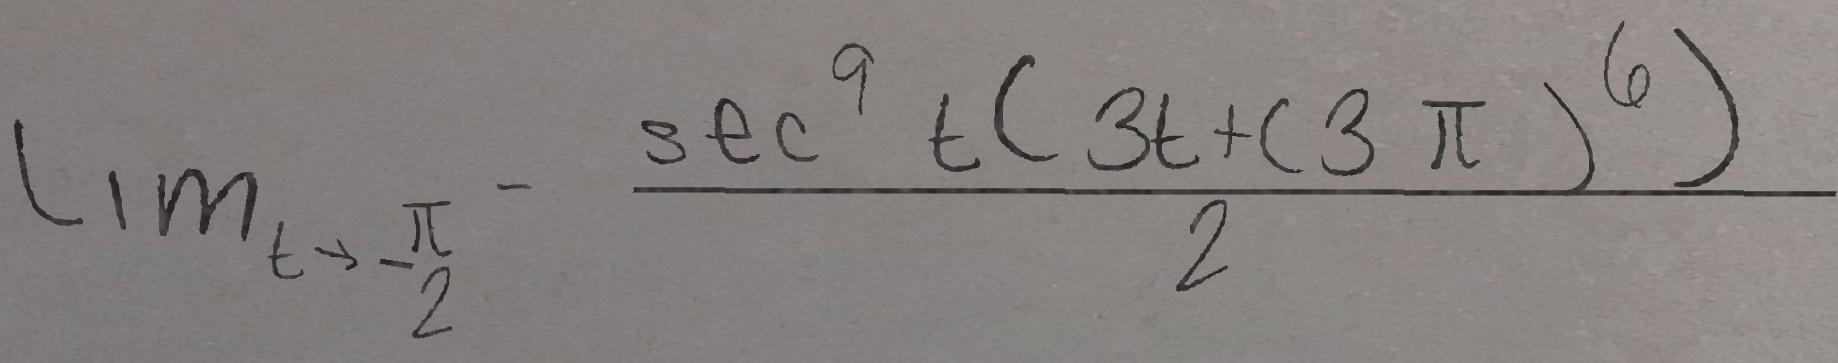 lim_{t→-\frac{π}{2}^-} \frac{sec^9 t(3t+(3π)^6)}{2}